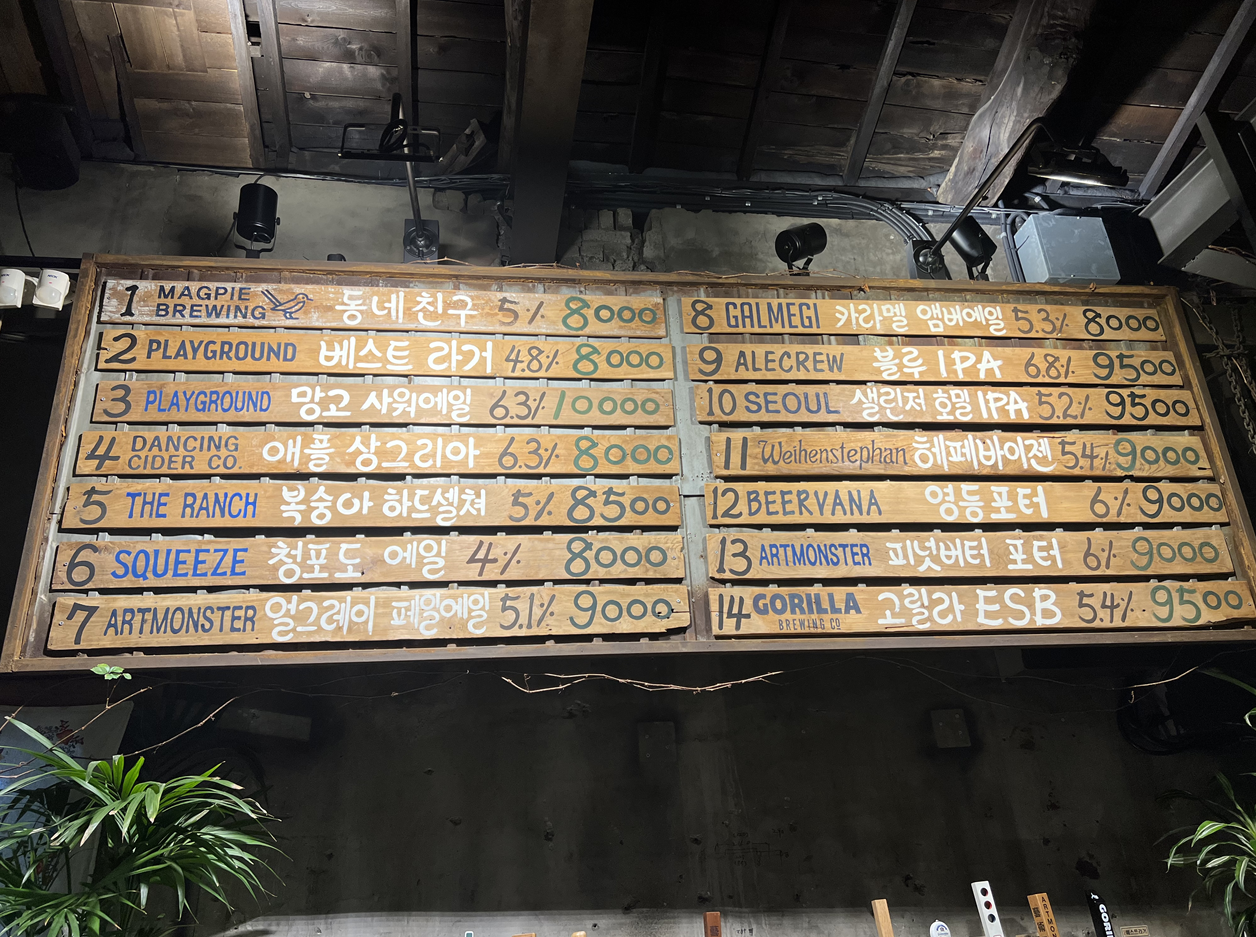 1 MAGPIE BREWING 동네친구 5% 8000
2 PLAYGROUND 베스트 라거 4.8% 8000
3 PLAYGROUND 망고 사워에일 6.3% 10000
4 DANCING CIDER CO. 애플 상그리아 6.3% 8000
5 THE RANCH 복숭아 하드셀쳐 5% 8500
6 SQUEEZE 청포도 에일 4% 8000
7 ARTMONSTER 얼그레이 페일에일 5.1% 9000
8 GALMEGI 카라멜 앰버에일 5.3% 8000
9 ALECREW 블루 IPA 6.8% 9500
10 SEOUL 샐린저 호밀 IPA 5.2% 9500
11 Weihenstephan 헤페바이젠 5.4% 9000
12 BEERVANA 영등포터 6% 9000
13 ARTMONSTER 피넛버터 포터 6% 9000
14 GORILLA BREWING CO 고릴라 ESB 5.4% 9500